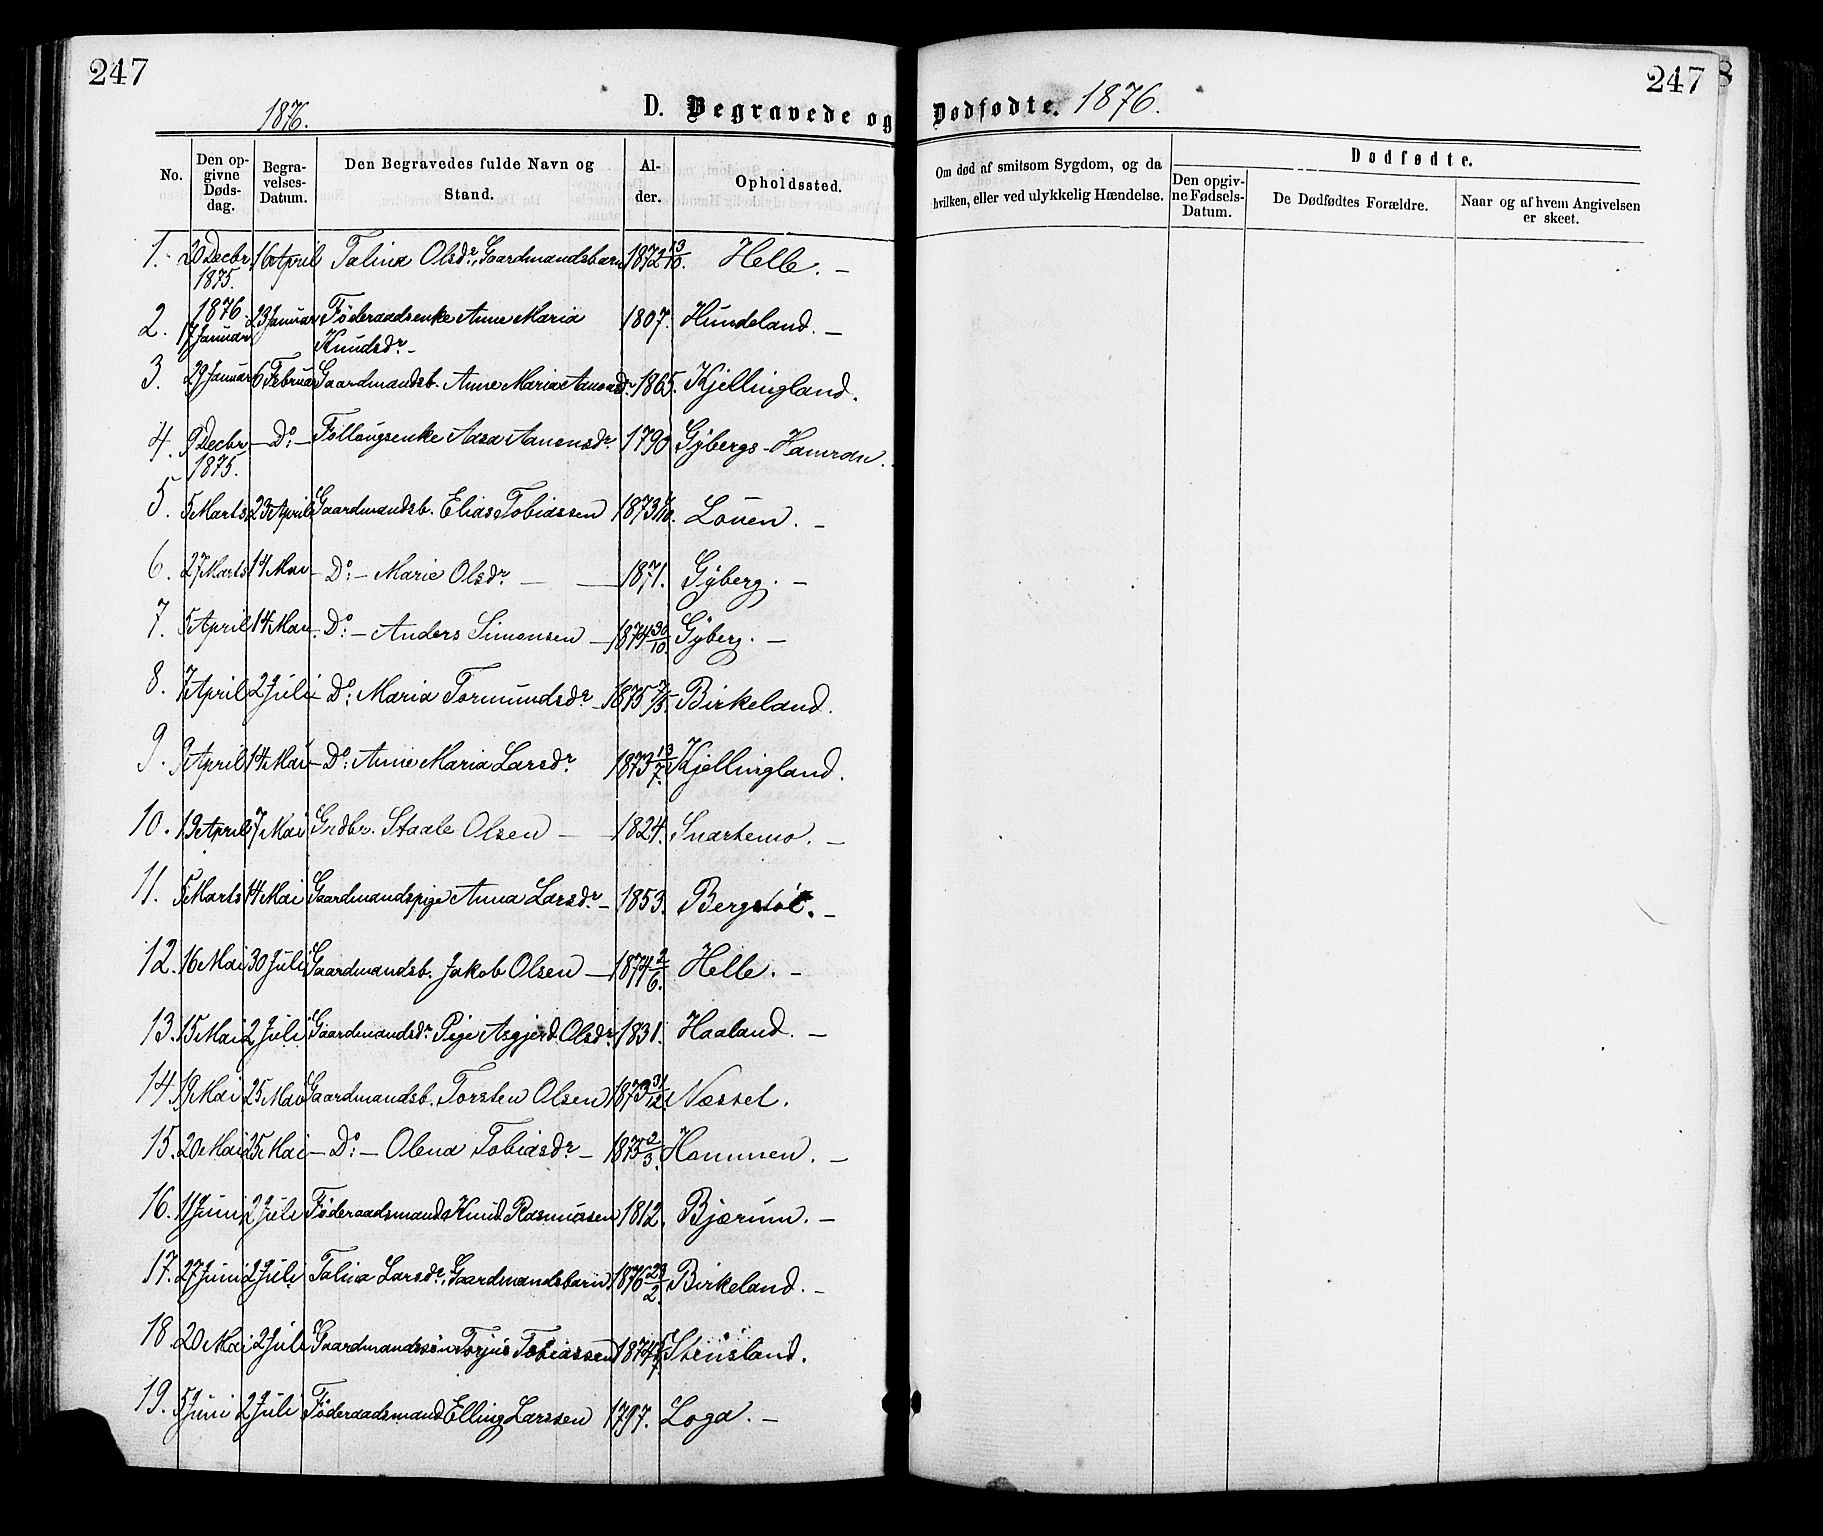 247
1876.
D. Begravede og Dødfødte. 1876.
247
8
No.
Den opgivne Dødsdag.
Begravelses-Datum.
Den Begravedes fulde Navn og Stand.
Alder.
Opholdssted.
Om død af smitsom Sygdom, og da hvilken, eller ved ulykkelig Hændelse.
Dødfødte.
Den opgivne Fødsels-Datum.
De Dødfødtes Forældre.
Naar og af hvem Angivelsen er skeet.
1. 20 Decbr 1875. 16 April Talina Olsdr, Gaardmandsbarn 1872 13/10. Helle. –
2. 1876. 17 Januar 23 Januar Føderaadsenke Anne Maria Knudsdr – 1807. Hundeland. –
3. 29 Januar 6 Februar Gaardmandsb. Anne Maria Aanensdr 1865. Kjellingland.
4. 9 Decbr 1875. – Do: – Føllougsenke Aasa Aanensdr 1790 Gybergs-Hamran.
5. 5 Marts 23 April Gaardmandsb. Elias Tobiassen 1873 Louen. –
6. 27 Marts 14 Mai – Do: – Marie Olsdr – 1871. Gyberg. –
7. 5 April 14 Mai – Do: – Anders Simonsen – 1874 30/10. Gyberg. –
8. 7 April 2 Juli – Do: Maria Tormundsdr – 1875 7/5. Birkeland.
9. 9 April 14 Mai – Do: Anne Maria Larsdr 1873 13/7. Kjellingland.
10. 19 April 7 Mai Grdbr. Staale Olsen – 1824. Snartemo. –
11. 5 Marts 14 Mai Gaardmandspige Anna Larsdr – 1853. Bergstøl. –
12. 16 Mai 30 Juli Gaardmandsb. Jakob Olsen – 1874 2/6. Helle. –
13. 15 Mai 2 Juli Gaardmandsdr Pige Asgjerd Olsdr 1831. Haaland. –
14. 19 Mai 25 Mai Gaardmandsb. Torsten Olsen 1873 31/12. Næsset.
15. 20 Mai 25 Mai – Do: – Olena Tobiasdr – 1875 2/3. Hommen. –
16. 11 Juni 2 Juli Føderaadsmand Knud Rasmussen 1812. Bjærum. –
17. 27 Juni 2 Juli Talina Larsdr, Gaardmandsbarn 1876 23/2. Birkeland. –
18. 20 Mai 2 Juli Gaardmandssøn Torjus Tobiassen 1874 Strusland.
19. 5 Juni 2 Juli Føderaadsmand Elling Larssen 1797. Loga. –